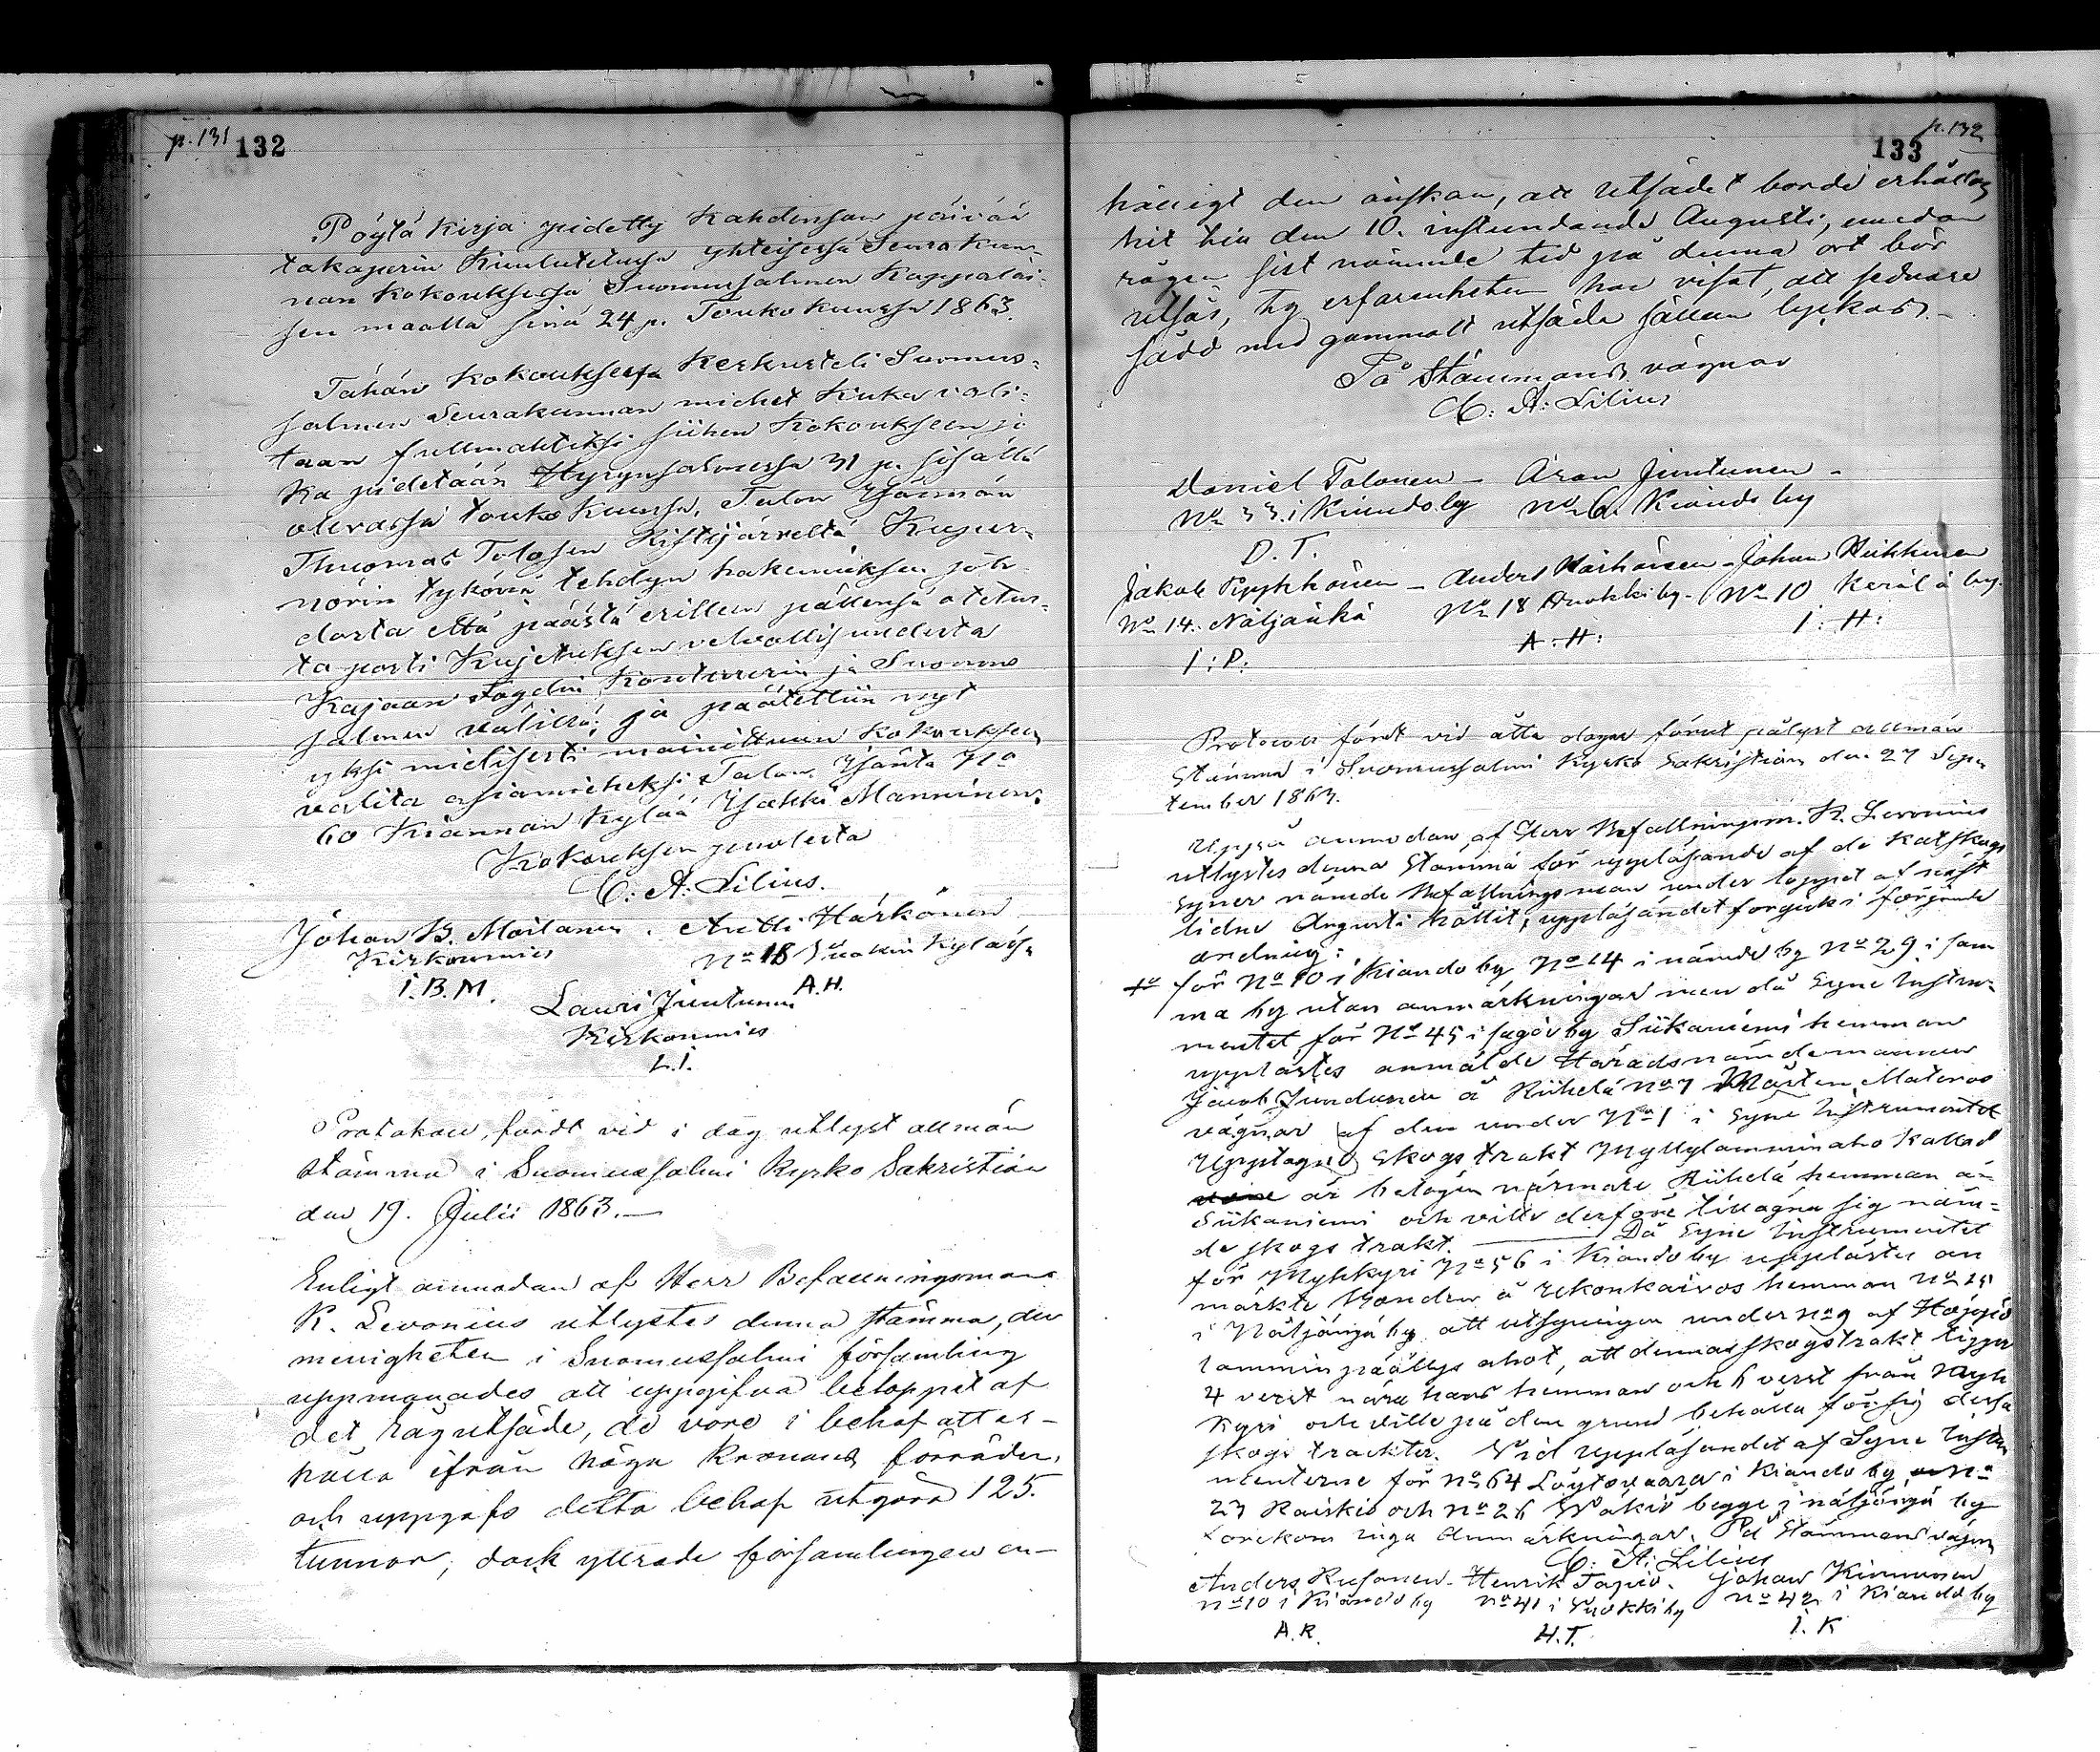 p. 131 132
Pöytä Kirja pidetty Kahdensan päivää
takaperin Kuulutetussa yhteisessä Seurakun-
nan Kokouksessa Suomussalmen Kappalai-
sen maalla sinä 24 p. Toukokuussa 1863.
Tähän Kokouksessa Keskusteli Suomus-
salmen Seurakunnan miehet Kuka vali-
taan fullmahtiksi siihen Kokoukseen jo
Ka pidetään Hyrynsalmessa 31 p. sisällä
olevassa toukokuussa, Talon Isännän
Thuomas Tolosen Ristijärveltä Kuver-
nörin tykönä tehdyn hakemuksen joh-
dosta että päästä erillen päällensä otetus-
ta posti Kujetuksen velvollisuudesta
Kajaan stagdin Konttorrin ja Suomus
salmen välillä; ja päätettiin nyt
yksi mielisesti mainittuun Kokoukseen
valita asiamieheksi Talon Isäntä No
60 Kiannan Kylää Isakki Manninen.
Kokouksen puolesta
C: A: Lilius.
Johan B. Moilanen. Antti Härkönen
Kirkonmies No 18 Kylässä
I. B. M. A. H.
Lauri Juntunen
Kirkonmies
L. I.
Protokoll, fördt vid i dag utlyst allmän
stämma i Suomussalmi Kyrko Sakristian
den 19. Julii 1863.—
Enligt anmodan af Herr Befallningsman
K. Levonius utlystes denna stämma, der
menigheten i Suomussalmi församling
uppmanades att uppgifva beloppet af
det rågutsäde, de vore i behof att er-
hålla ifrån höga Kronans förråder,
och uppgafs detta behof utgöra 125.
tunnor; dock yttrade församlingen en-
p. 132
133
hälligt den önskan, att utsädet borde erhållas
hit till den 10. instundande Augusti, emedan
rågen sist nämnde tid på denna ort bör
utsås, ty erfarenheten har visat, att sednare
sådd med gammalt utsäde sällan lyckas.—
På Stämmans vägnar
C: A: Lilius
Daniel Tolonen — Aron Juntunen —
No 33. i Kiando by No 6. Kiando by
D. T.
Jakob Pyykkönen — Anders Härkönen — Johan Heikkinen
No 14. Näljänkä No 18 Ruokki by — No 10 Kerälä by.
I: P: A: H: I: H:
Protocoll fördt vid åtta dagar förut pålyst allmän
Stämma i Suomussalmi Kyrko Sakristian den 27 Sep-
tember 1863.
Uppå anmodan af Herr Befallningsm. K. Levonius
utlystes denna Stämma för uppläsande af de
Syner nämde Befallningsman under loppet af sist
lidne Augusti hållit, uppläsandet forgick i följande
ordning:
för No 10 i Kiando by No 14 i nämde by No 29 i sam
ma by utan anmärkningar men då Syne Instru-
mentet för No 45 i sagde by Siikaniemi hemman
upplästes anmälde Häradsnämdemannen
Jacob Jundunen å Riihelä No 7 Mårten Materos
vägnar af den under No 1 i Syne Instrumentet
Upptagne Skogs trakt Myllylamminaho Kallad
är belägen närmare Riihelä hemman än
Siikaniemi och ville derföre tillägna sig näm-
de skogs trakt. — Då Syne Instrumentet
för Myhkyri No 56 i Kiando by upplästes an
märkte Bonden å hemman No 25
i Näljängä by att utsyningen under No 9 af
lammin päällys ahot, att denna skogstrakt ligger
4 verst nära hans hemman och 6 verst från Myh
Kyri och ville på den grund behålla för sig dessa
skogs trackter. Vid uppläsandet af Syne Instru
menterne för No 64 Löytövaara i Kiando by No
23 Kaiskio och No 26 Wäkiö begge i näljängä by
forekom inga Anmärkningar. På Stämmans vägnar
C: A: Lilius
Anders Kusonen — Henrik Tapio. Johan Kinnunen
No 10 i Kiando by No 41 i Ruokki by No 42 i Kiando by
A. K. H. T. I. K